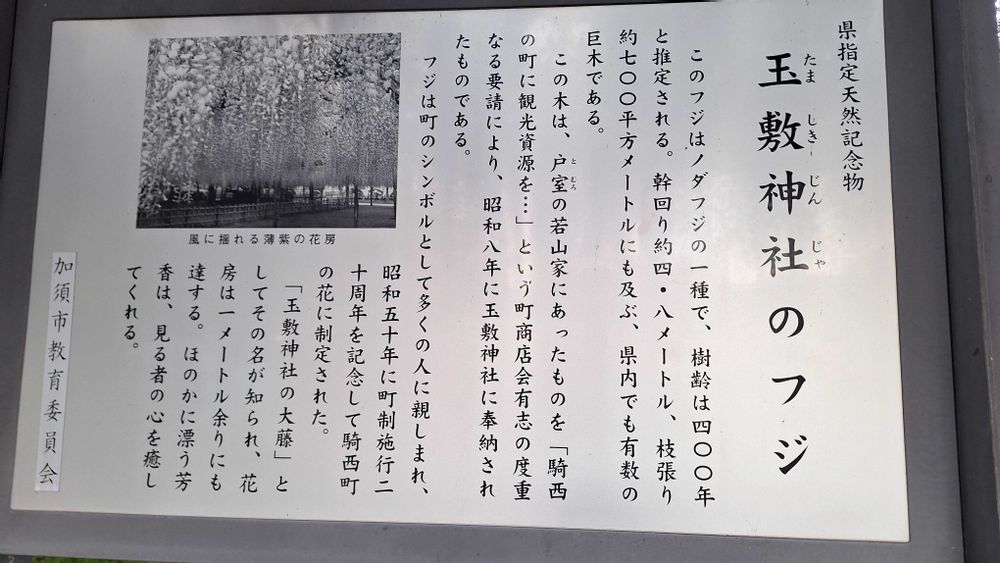 県指定天然記念物
玉敷神社のフジ
たましきじんじゃ
このフジはノダフジの一種で、樹齢は四〇〇年
と推定される。幹回り約四・八メートル、枝張り
約七〇〇平方メートルにも及ぶ、県内でも有数の
巨木である。
この木は、戸室の若山家にあったものを「騎西
とむろ
の町に観光資源を…」という町商店会有志の度重
なる要請により、昭和八年に玉敷神社に奉納され
たものである。
フジは町のシンボルとして多くの人に親しまれ、
昭和五十年に町制施行二
十周年を記念して騎西町
の花に制定された。
「玉敷神社の大藤」と
してその名が知られ、花
房は一メートル余りにも
達する。ほのかに漂う芳
香は、見る者の心を癒し
てくれる。
風に揺れる薄紫の花房
加須市教育委員会